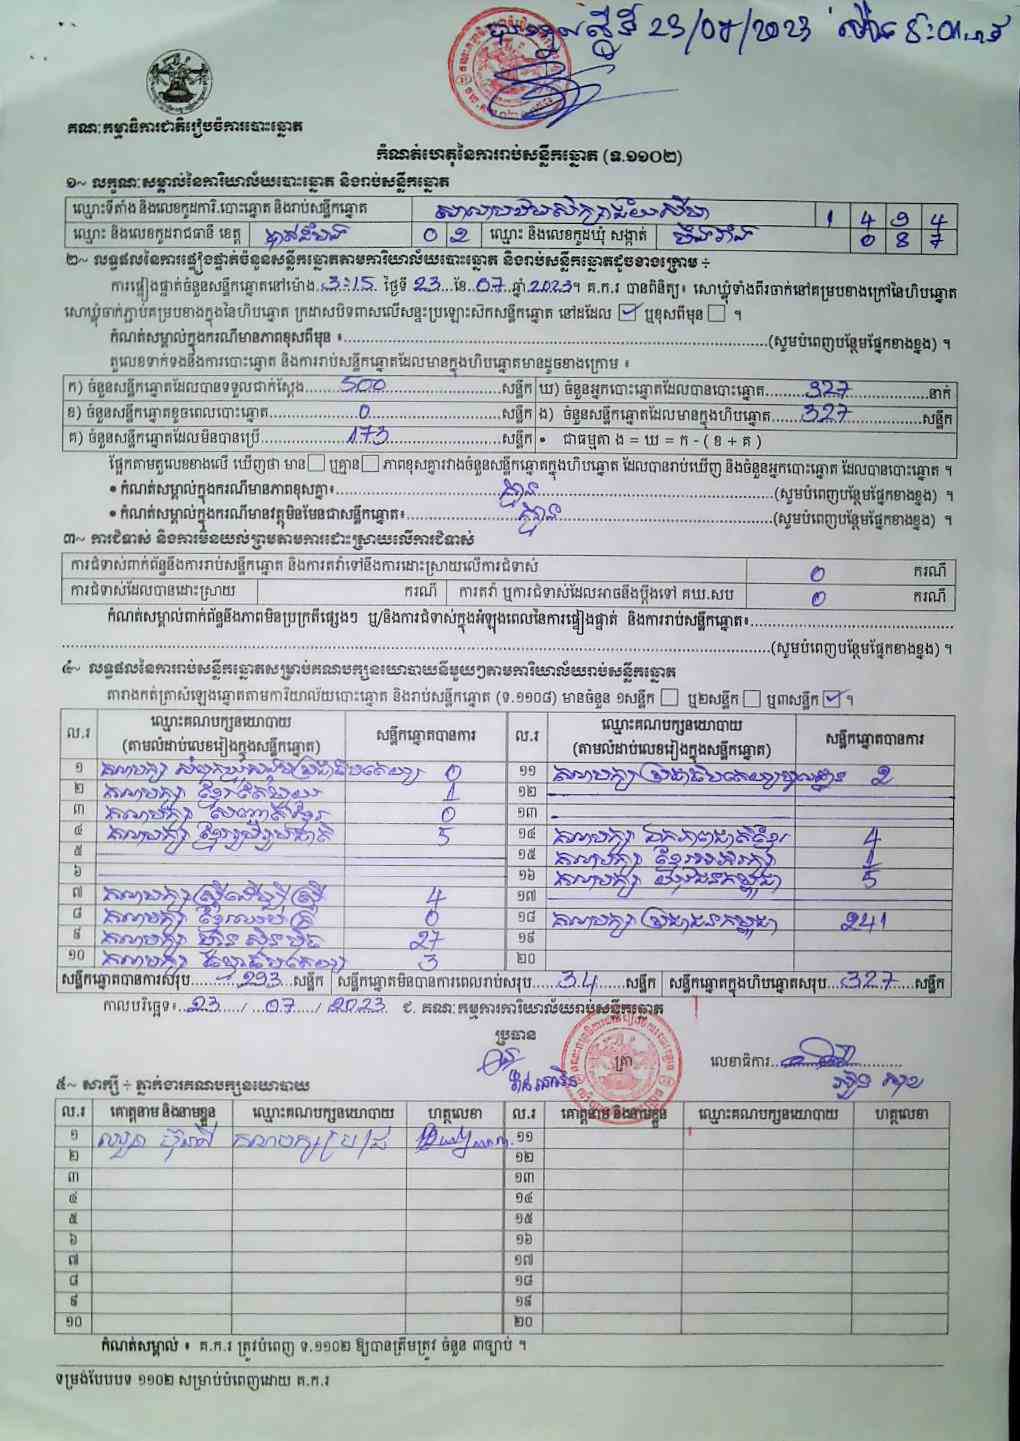 23/07/2023
គណៈកម្មាធិការជាតិរៀបចំការបោះឆ្នោត
កំណត់ហេតុនៃការរាប់សន្លឹកឆ្នោត (ទ.១១០២)
១~ លក្ខណៈសម្គាល់នៃការិយាល័យបោះឆ្នោត និងរាប់សន្លឹកឆ្នោត
ឈ្មោះទីតាំង និងលេខកូដការិ.បោះឆ្នោត និងរាប់សន្លឹកឆ្នោត 1 4 9 4
ឈ្មោះ និងលេខកូដរាជធានី ខេត្ត បាត់ដំបង 0 2 ឈ្មោះ និងលេខកូដឃុំ សង្កាត់ 0 8 7
២~ លទ្ធផលនៃការផ្ទៀងផ្ទាត់ចំនួនសន្លឹកឆ្នោតតាមការិយាល័យបោះឆ្នោត និងរាប់សន្លឹកឆ្នោតដូចខាងក្រោម ÷
ការផ្ទៀងផ្ទាត់ចំនួនសន្លឹកឆ្នោតនៅម៉ោង..3:15..ថ្ងៃទី 23...ខែ..07..ឆ្នាំ 2023។ គ.ក.រ បានពិនិត្យ៖ សោឃ្លុំទាំងពីរចាក់នៅគម្របខាងក្រៅនៃហិបឆ្នោត
សោឃ្លុំចាក់ភ្ជាប់គម្របខាងក្នុងនៃហិបឆ្នោត ក្រដាសបិទពាសលើសន្ទះប្រឡោះសិកសន្លឹកឆ្នោត នៅដដែល ☑ ឬខុសពីមុន ☐ ។
កំណត់សម្គាល់ក្នុងករណីមានភាពខុសពីមុន ៖..........(សូមបំពេញបន្ថែមផ្នែកខាងខ្នង) ។
តួលេខទាក់ទងនឹងការបោះឆ្នោត និងការរាប់សន្លឹកឆ្នោតដែលមានក្នុងហិបឆ្នោតមានដូចខាងក្រោម ៖
ក) ចំនួនសន្លឹកឆ្នោតដែលបានទទួលជាក់ស្ដែង......500......សន្លឹក ឃ) ចំនួនអ្នកបោះឆ្នោតដែលបានបោះឆ្នោត......327......នាក់
ខ) ចំនួនសន្លឹកឆ្នោតខូចពេលបោះឆ្នោត......0......សន្លឹក ង) ចំនួនសន្លឹកឆ្នោតដែលមានក្នុងហិបឆ្នោត......327......សន្លឹក
គ) ចំនួនសន្លឹកឆ្នោតដែលមិនបានប្រើ......173......សន្លឹក • ជាធម្មតា ង = ឃ = ក - ( ខ + គ )
ផ្អែកតាមតួលេខខាងលើ ឃើញថា មាន ☐ ឬគ្មាន ☐ ភាពខុសគ្នារវាងចំនួនសន្លឹកឆ្នោតក្នុងហិបឆ្នោត ដែលបានរាប់ឃើញ និងចំនួនអ្នកបោះឆ្នោត ដែលបានបោះឆ្នោត ។
• កំណត់សម្គាល់ក្នុងករណីមានភាពខុសគ្នា៖......គ្មាន......(សូមបំពេញបន្ថែមផ្នែកខាងខ្នង) ។
• កំណត់សម្គាល់ក្នុងករណីមានវត្ថុមិនមែនជាសន្លឹកឆ្នោត៖......គ្មាន......(សូមបំពេញបន្ថែមផ្នែកខាងខ្នង) ។
៣~ ការជំទាស់ និងការមិនយល់ព្រមតាមការដោះស្រាយលើការជំទាស់
ការជំទាស់ពាក់ព័ន្ធនឹងការរាប់សន្លឹកឆ្នោត និងការតវ៉ាទៅនឹងការដោះស្រាយលើការជំទាស់ 0 ករណី
ការជំទាស់ដែលបានដោះស្រាយ ករណី ការតវ៉ា ឬការជំទាស់ដែលអាចនឹងប្ដឹងទៅ គឃ.សប 0 ករណី
កំណត់សម្គាល់ពាក់ព័ន្ធនឹងភាពមិនប្រក្រតីផ្សេងៗ ឬ/និងការជំទាស់ក្នុងអំឡុងពេលនៃការផ្ទៀងផ្ទាត់ និងការរាប់សន្លឹកឆ្នោត៖..........
..........(សូមបំពេញបន្ថែមផ្នែកខាងខ្នង) ។
៤~ លទ្ធផលនៃការរាប់សន្លឹកឆ្នោតសម្រាប់គណបក្សនយោបាយនីមួយៗតាមការិយាល័យរាប់សន្លឹកឆ្នោត
តារាងកត់ត្រាសំឡេងឆ្នោតតាមការិយាល័យបោះឆ្នោត និងរាប់សន្លឹកឆ្នោត (ទ.១១០៨) មានចំនួន ១សន្លឹក ☐ ឬ២សន្លឹក ☐ ឬ៣សន្លឹក ☑ ។
ល.រ ឈ្មោះគណបក្សនយោបាយ (តាមលំដាប់លេខរៀងក្នុងសន្លឹកឆ្នោត) សន្លឹកឆ្នោតបានការ ល.រ ឈ្មោះគណបក្សនយោបាយ (តាមលំដាប់លេខរៀងក្នុងសន្លឹកឆ្នោត) សន្លឹកឆ្នោតបានការ
១ គណបក្ស សំបុកឃ្មុំសង្គមប្រជាធិបតេយ្យ 0 ១១ គណបក្សប្រជាធិបតេយ្យមូលដ្ឋាន 2
២ គណបក្ស ខ្មែរតែមួយ 1 ១២
៣ គណបក្ស សញ្ជាតិខ្មែរ 0 ១៣
៤ គណបក្ស ខ្មែររួបរួមជាតិ 5 ១៤ គណបក្ស ឯកភាពជាតិខ្មែរ 4
៥ ១៥ គណបក្ស ខ្មែរអភិរក្ស 1
៦ ១៦ គណបក្ស យុវជនកម្ពុជា 5
៧ គណបក្សស្ត្រីដើម្បីស្ត្រី 4 ១៧
៨ គណបក្ស ខ្មែរឈប់ក្រ 0 ១៨ គណបក្សប្រជាជនកម្ពុជា 241
៩ គណបក្ស ហ្វ៊ុនស៊ិនប៉ិច 27 ១៩
១០ គណបក្ស ធម្មាធិបតេយ្យ 3 ២០
សន្លឹកឆ្នោតបានការសរុប......293......សន្លឹក សន្លឹកឆ្នោតមិនបានការពេលរាប់សរុប......34......សន្លឹក សន្លឹកឆ្នោតក្នុងហិបឆ្នោតសរុប...327...សន្លឹក
កាលបរិច្ឆេទ៖..23..../...07..../..2023 ជ. គណៈកម្មការការិយាល័យរាប់សន្លឹកឆ្នោត
ប្រធាន
ត្រា
លេខាធិការ
៥~ សាក្សី ÷ ភ្នាក់ងារគណបក្សនយោបាយ
ល.រ គោត្តនាម និងនាមខ្លួន ឈ្មោះគណបក្សនយោបាយ ហត្ថលេខា ល.រ គោត្តនាម និងនាមខ្លួន ឈ្មោះគណបក្សនយោបាយ ហត្ថលេខា
១ គណបក្ស ប្រ ជ ១១
២ ១២
៣ ១៣
៤ ១៤
៥ ១៥
៦ ១៦
៧ ១៧
៨ ១៨
៩ ១៩
១០ ២០
កំណត់សម្គាល់ ៖ គ.ក.រ ត្រូវបំពេញ ទ.១១០២ ឱ្យបានត្រឹមត្រូវ ចំនួន ៣ច្បាប់ ។
ទម្រង់បែបបទ ១១០២ សម្រាប់បំពេញដោយ គ.ក.រ